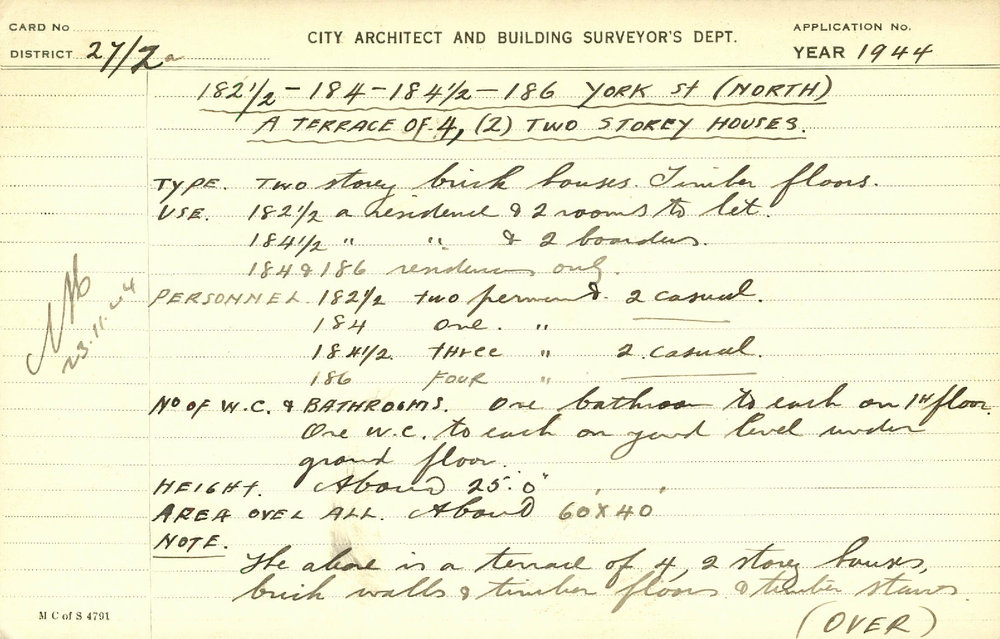 CARD No
CITY ARCHITECT AND BUILDING SURVEYOR'S DEPT.
APPLICATION No.
DISTRICT 27/2a
YEAR 1944
182½ - 184 - 184½ - 186 YORK St (NORTH)
A TERRACE OF 4, (2) TWO STOREY HOUSES.
TYPE. TWO storey brick houses. Timber floors.
USE. 182½ a residence & 2 rooms to let.
184½ " " & 2 boarders.
184 & 186 residences only.
PERSONNEL 182½ two perman't. 2 casual.
184 one. "
184½. three " 2 casual.
186 FOUR "
23.11.44
No OF W.C. & BATHROOMS. One bathroom to each on 1st floor.
One W.C. to each on yard level under
ground floor.
HEIGHT. About 25'.0"
AREA OVER ALL. About 60' X 40'
NOTE.
The above is a terrace of 4, 2 storey houses,
brick walls & timber floors & timber stairs.
(OVER)
M C of S 4791